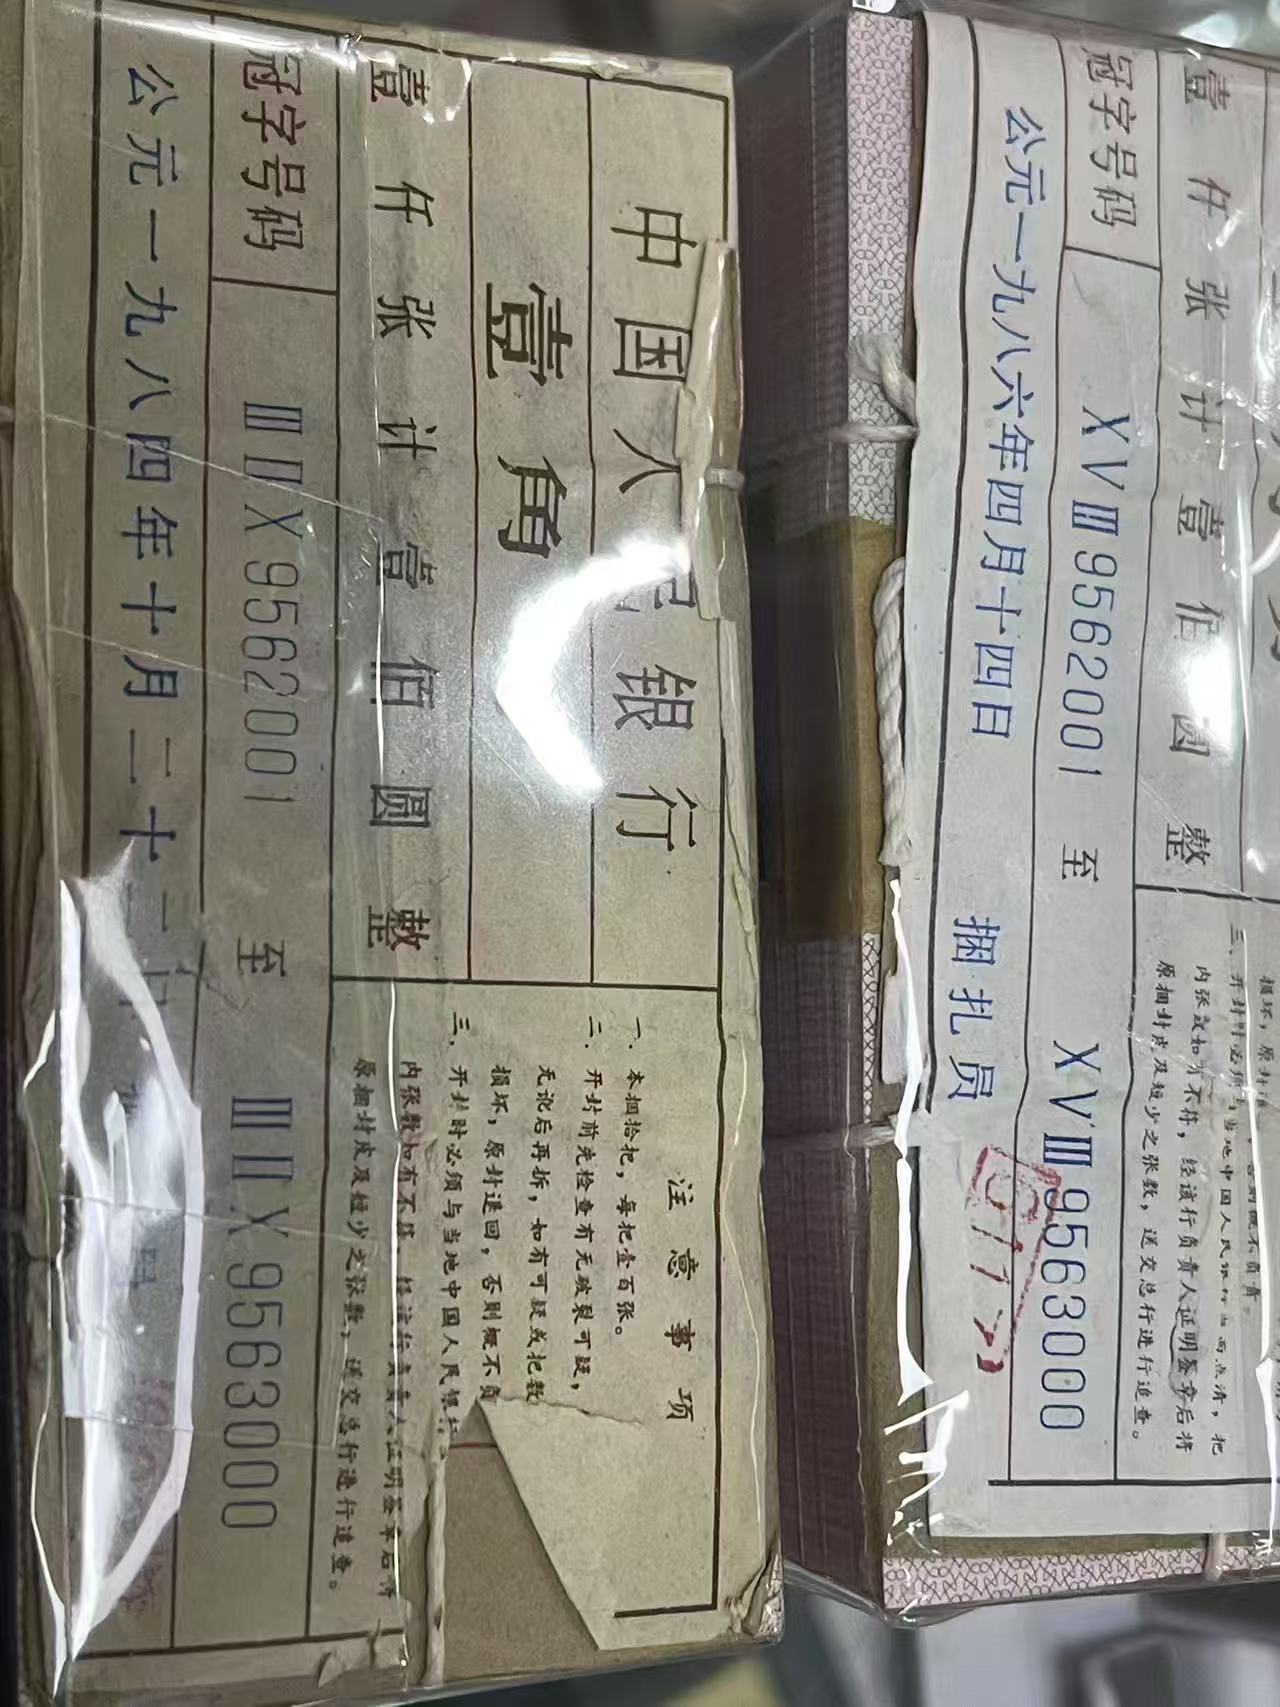 中国人民银行
壹角
壹仟张计壹佰圆整
冠字号码 ⅢⅡⅩ9562001 至 ⅢⅡⅩ9563000
公元一九八四年十月二十二日
注意事项
一. 本捆拾把，每把壹百张。
二. 开封前先检查有无破裂可疑，
无讹后再拆，如有可疑或把数
损坏，原封退回，否则概不负
三. 开封时必须与当地中国人民银行
内张数如有不符，经该行负责人证明签章后将
原捆封皮及短少之张数，送交总行进行追查。
壹仟张计壹佰圆整
冠字号码 ⅩⅤⅢ9562001 至 ⅩⅤⅢ9563000
公元一九八六年四月十四日 捆扎员
损坏，原封退
否则概不负责。
三. 开封时必须与当地中国人民银行当面点清，把
内张数如有不符，经该行负责人证明签章后将
原捆封皮及短少之张数，送交总行进行追查。